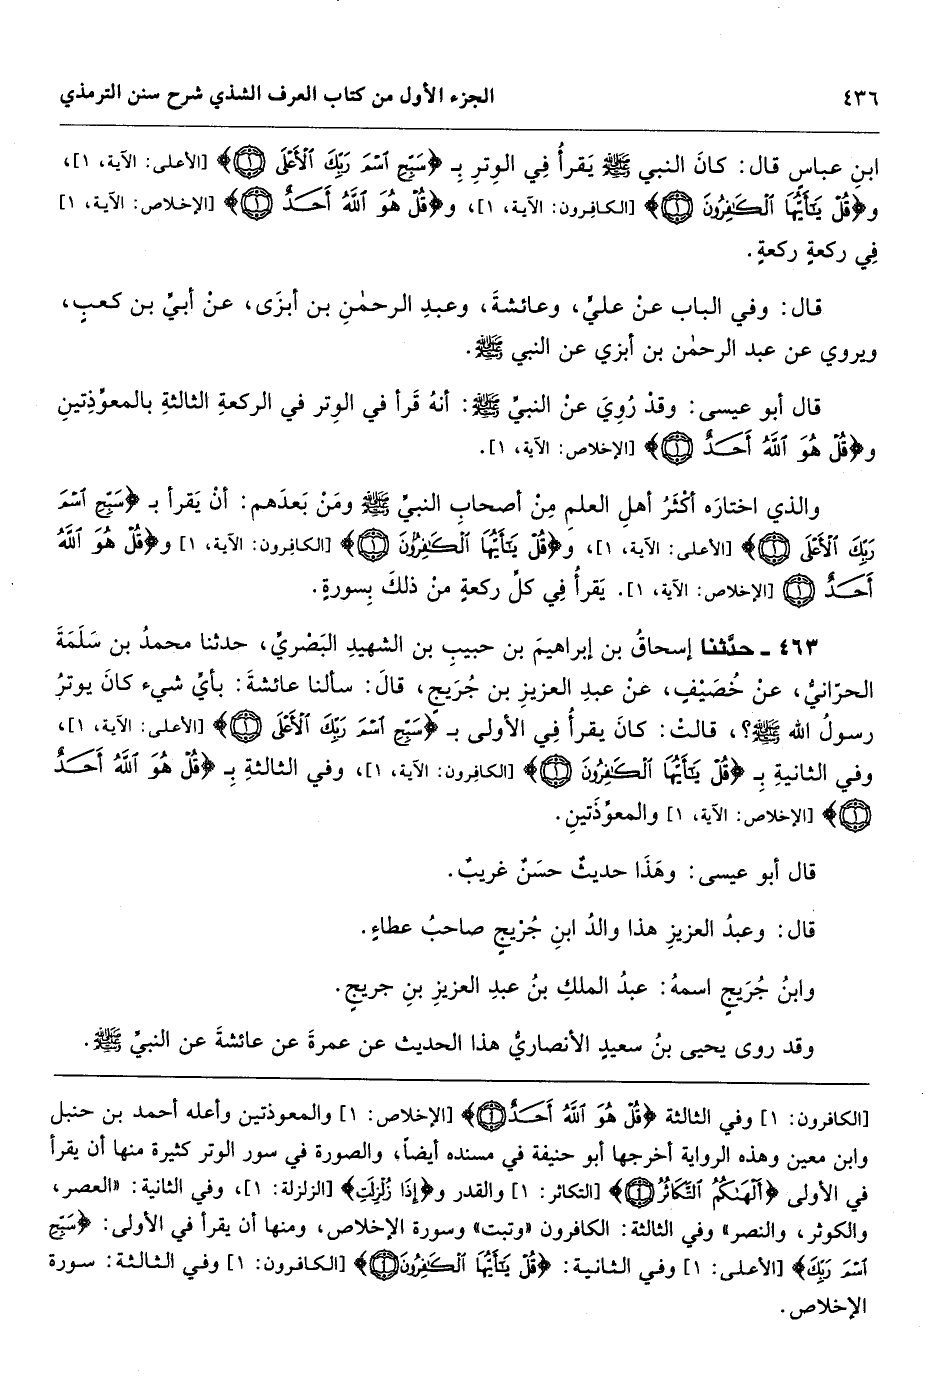 ٤٣٦ الجزء الأول من كتاب العرف الشذي شرح سنن الترمذي
ابنِ عباسٍ قال: كانَ النبي ﷺ يَقرأُ فِي الوِترِ بِـ ﴿سَبِّحِ ٱسْمَ رَبِّكَ ٱلْأَعْلَى ۝١﴾ [الأعلى: الآية، ١]،
و﴿قُلْ يَٰٓأَيُّهَا ٱلْكَٰفِرُونَ ۝١﴾ [الكافرون: الآية، ١]، و﴿قُلْ هُوَ ٱللَّهُ أَحَدٌ ۝١﴾ [الإخلاص: الآية، ١]
فِي ركعةٍ ركعةٍ.
قال: وفي الباب عنْ عليٍّ، وعائشةَ، وعبدِ الرحمٰنِ بن أبزَى، عنْ أبيِّ بن كعبٍ،
ويروي عن عبد الرحمٰن بن أبزي عن النبي ﷺ.
قال أبو عيسى: وقدْ رُوِيَ عنْ النبيِّ ﷺ: أنهُ قَرأ في الوِتر في الركعةِ الثالثةِ بالمعوِّذِتينِ
و﴿قُلْ هُوَ ٱللَّهُ أَحَدٌ ۝١﴾ [الإخلاص: الآية، ١].
والذي اختارَه أكْثَرُ أهلِ العلمِ مِنْ أصحابِ النبيِّ ﷺ ومَنْ بَعدَهم: أنْ يَقرأ بـ ﴿سَبِّحِ ٱسْمَ
رَبِّكَ ٱلْأَعْلَى ۝١﴾ [الأعلى: الآية، ١]، و﴿قُلْ يَٰٓأَيُّهَا ٱلْكَٰفِرُونَ ۝١﴾ [الكافرون: الآية، ١] و﴿قُلْ هُوَ ٱللَّهُ
أَحَدٌ ۝١ [الإخلاص: الآية، ١]. يَقرأُ فِي كلِّ ركعةٍ منْ ذلكَ بِسورةٍ.
٤٦٣ ـ حدَّثنا إسحاقُ بن إبراهيمَ بن حبيبِ بن الشهيدِ البَصْريِّ، حدثنا محمدُ بن سَلَمَةَ
الحرّانيُّ، عنْ خُصَيْفٍ، عنْ عبدِ العزيزِ بن جُرَيجٍ، قالَ: سألنا عائشةَ: بأيِّ شيء كانَ يوترُ
رسولُ الله ﷺ؟، قالتْ: كانَ يقرأُ فِي الأولى بـ ﴿سَبِّحِ ٱسْمَ رَبِّكَ ٱلْأَعْلَى ۝١﴾ [الأعلى: الآية، ١]،
وفي الثانيةِ بِـ ﴿قُلْ يَٰٓأَيُّهَا ٱلْكَٰفِرُونَ ۝١﴾ [الكافرون: الآية، ١]، وفي الثالثةِ بِـ ﴿قُلْ هُوَ ٱللَّهُ أَحَدٌ
۝١﴾ [الإخلاص: الآية، ١] والمعوِّذَتينِ.
قال أبو عيسى: وهَذَا حديثٌ حسَنٌ غريبٌ.
قال: وعبدُ العزيزِ هذا والدُ ابنِ جُرْيجٍ صاحبُ عطاءٍ.
وابنُ جُرَيجٍ اسمهُ: عبدُ الملكِ بنُ عبدِ العزيزِ بنِ جريجٍ.
وقد روى يحيى بنُ سعيدٍ الأنصاريُّ هذا الحديث عن عمرةَ عن عائشةَ عن النبيِّ ﷺ.
[الكافرون: ١] وفي الثالثة ﴿قُلْ هُوَ ٱللَّهُ أَحَدٌ ۝١﴾ [الإخلاص: ١] والمعوذتين وأعله أحمد بن حنبل
وابن معين وهذه الرواية أخرجها أبو حنيفة في مسنده أيضاً، والصورة في سور الوتر كثيرة منها أن يقرأ
في الأولى ﴿أَلْهَىٰكُمُ ٱلتَّكَاثُرُ ۝١﴾ [التكاثر: ١] والقدر و﴿إِذَا زُلْزِلَتِ﴾ [الزلزلة: ١]، وفي الثانية: «العصر،
والكوثر، والنصر» وفي الثالثة: الكافرون «وتبت» وسورة الإخلاص، ومنها أن يقرأ في الأولى: ﴿سَبِّحِ
ٱسْمَ رَبِّكَ﴾ [الأعلى: ١] وفي الثانية: ﴿قُلْ يَٰٓأَيُّهَا ٱلْكَٰفِرُونَ ۝١﴾ [الكافرون: ١] وفي الثالثة: سورة
الإخلاص.